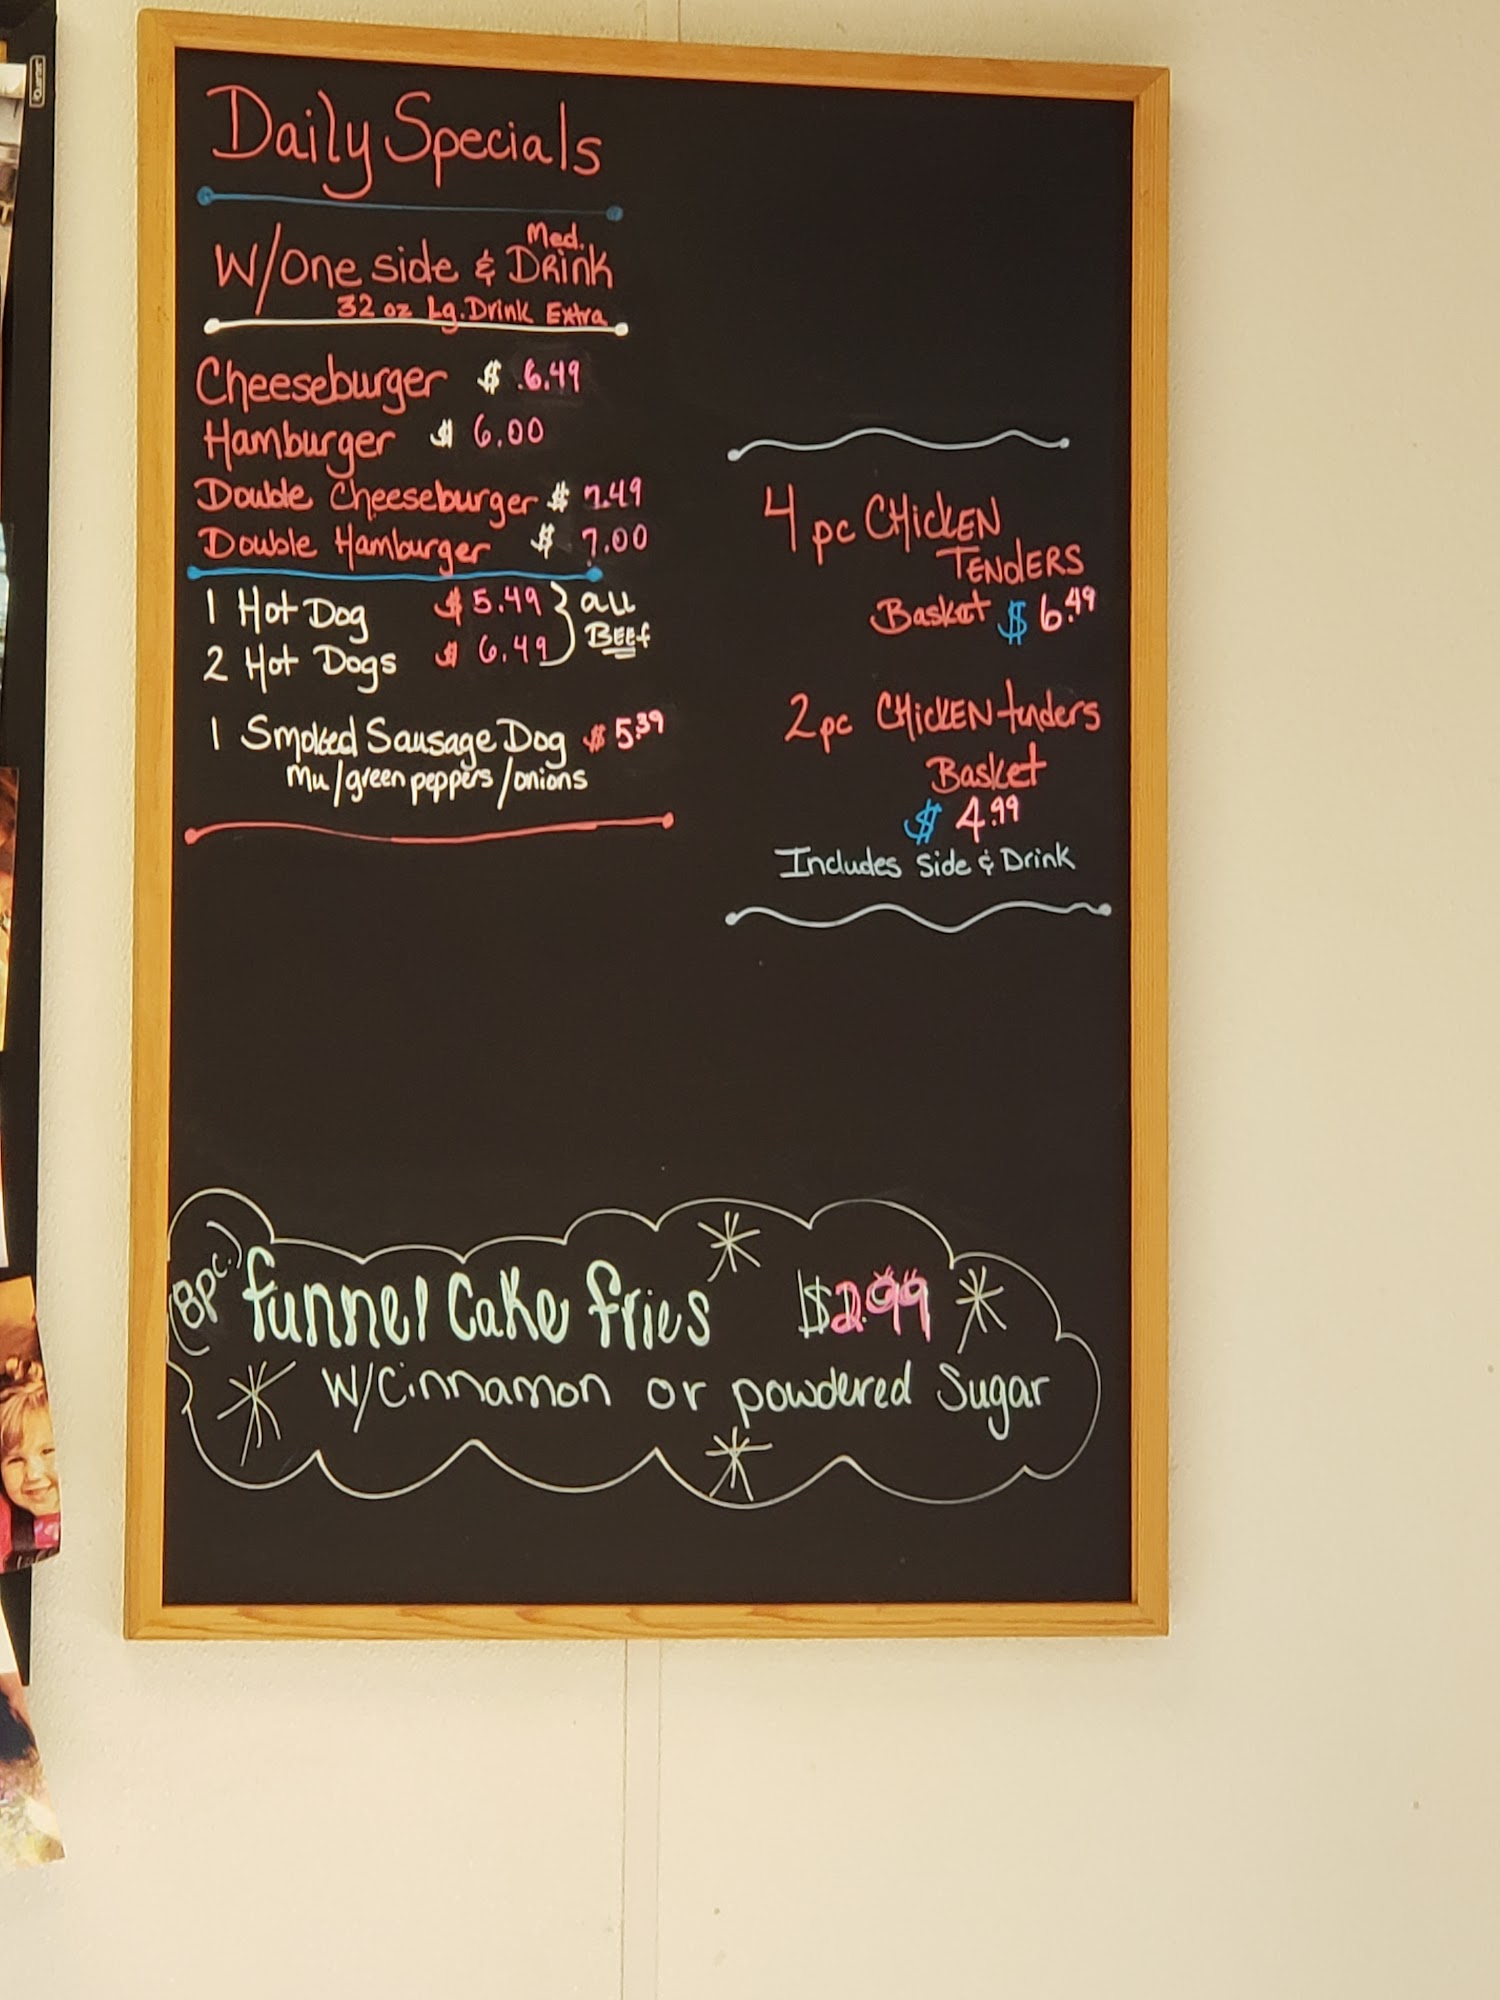 Quartet
Daily Specials
Med.
W/One side & Drink
32 oz Lg. Drink Extra
Cheeseburger $ .6.49
Hamburger $ 6.00
Double Cheeseburger $ 7.49
Double Hamburger $ 7.00
1 Hot Dog $ 5.49 } all
2 Hot Dogs $ 6.49 Beef
1 Smoked Sausage Dog $ 5.39
Mu/green peppers/onions
4 pc CHICKEN
TENDERS
Basket $ 6.49
2 pc CHICKEN tenders
Basket
$ 4.99
Includes Side & Drink
(8pc.) funnel Cake fries $2.99
W/Cinnamon or powdered Sugar